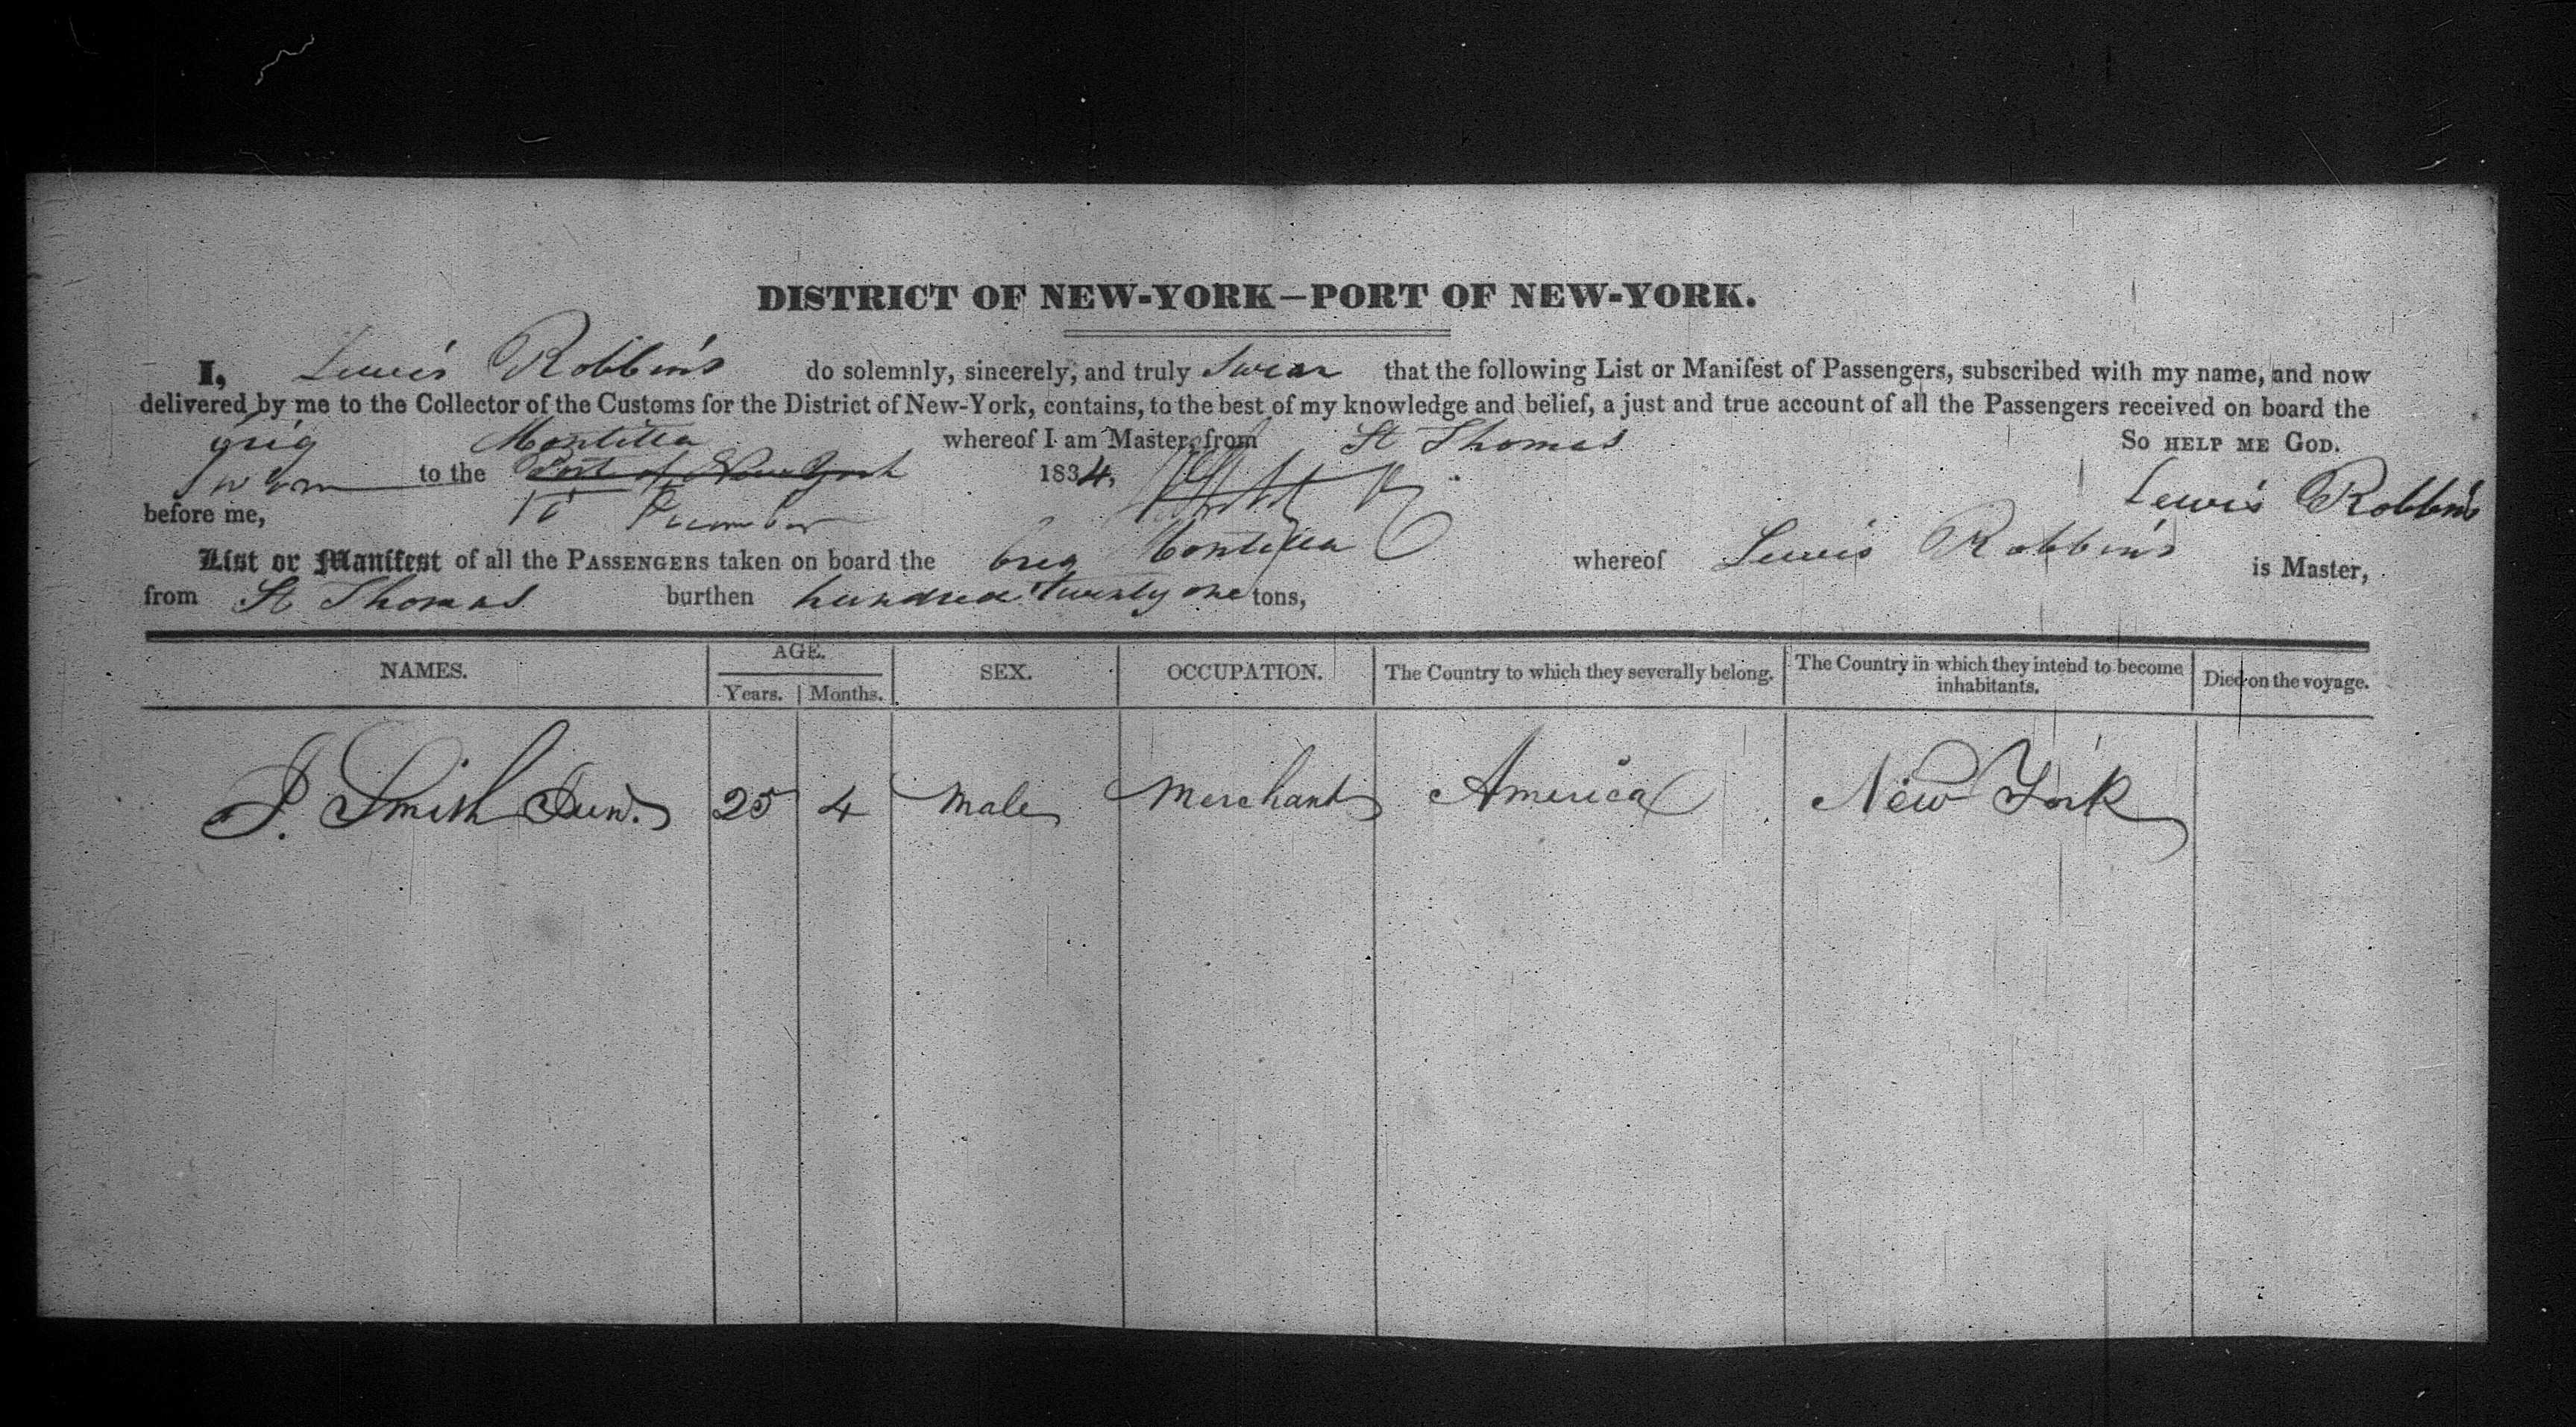 DISTRICT OF NEW-YORK—PORT OF NEW-YORK.
I, Lewis Robbins do solemnly, sincerely, and truly Swear that the following List or Manifest of Passengers, subscribed with my name, and now
delivered by me to the Collector of the Customs for the District of New-York, contains, to the best of my knowledge and belief, a just and true account of all the Passengers received on board the
Brig Montilla whereof I am Master, from St Thomas So HELP ME GOD.
Sworn to the Port of New York 1834,
Lewis Robbins
before me,
List or Manifest of all the PASSENGERS taken on board the Brig Montilla whereof Lewis Robbins is Master,
from St Thomas burthen hundred twenty one tons,
NAMES. AGE. Years. Months. SEX. OCCUPATION. The Country to which they severally belong. The Country in which they intend to become inhabitants. Died on the voyage.
J. Smith Jun. 25 4 Male Merchant America New York